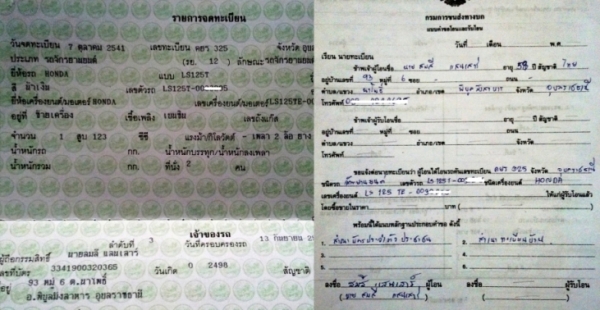 รายการจดทะเบียน
วันจดทะเบียน 7 ตุลาคม 2541 เลขทะเบียน คยว 325 จังหวัด อุบล
ประเภท รถจักรยานยนต์ (รย. 12) ลักษณะ รถจักรยานยนต์
ยี่ห้อรถ HONDA แบบ LS125T
สี ดำเงิน เลขตัวรถ LS125T-00
ยี่ห้อเครื่องยนต์/มอเตอร์ HONDA เลขเครื่องยนต์/มอเตอร์ LS125TE-00
อยู่ที่ ข้างเครื่อง เชื้อเพลิง เบนซิน เลขถังแก๊ส
จำนวน 1 สูบ 123 ซีซี แรงม้า/กิโลวัตต์ - เพลา 2 ล้อ ยาง
น้ำหนักรถ กก. น้ำหนักบรรทุก/น้ำหนักลงเพลา
น้ำหนักรวม กก. ที่นั่ง 2 คน
เจ้าของรถ
ลำดับที่ 3 วันที่ครอบครองรถ 13 กันยายน
ผู้ถือกรรมสิทธิ์ นายสมลี แสนเสาร์
เลขที่บัตร 3341900320365 วันเกิด 0 2498 สัญชาติ
ที่อยู่ 93 หมู่ 6 ต.นาโพธิ์
อ.พิบูลมังสาหาร อุบลราชธานี
กรมการขนส่งทางบก
แบบคำขอโอนและรับโอน
วันที่ เดือน พ.ศ.
เรียน นายทะเบียน
ข้าพเจ้าผู้โอนชื่อ นาย สมลี แสนเสาร์ อายุ 58 ปี สัญชาติ ไทย
อยู่บ้านเลขที่ 93 หมู่ 6 ซอย ถนน
ตำบล/แขวง นาโพธิ์ อำเภอ/เขต พิบูลมังสาหาร จังหวัด อุบลราชธานี
โทรศัพท์
ข้าพเจ้าผู้รับโอนชื่อ อายุ ปี สัญชาติ
อยู่บ้านเลขที่ หมู่ ซอย ถนน
ตำบล/แขวง อำเภอ/เขต จังหวัด
โทรศัพท์
ขอแจ้งต่อนายทะเบียนว่า ผู้โอนได้โอนรถคันเลขทะเบียน คยว 325 จังหวัด อุบลราชธานี
ชนิดรถ เลขตัวรถ LS125T-00 ชนิดเครื่องยนต์ HONDA
เลขเครื่องยนต์ LS 125 TE - 00 ให้แก่ผู้รับโอนแล้ว
โดยซื้อขายในราคา บาท
พร้อมนี้ได้แนบหลักฐานประกอบคำขอ ดังนี้
1. สำเนาบัตรประจำตัวประชาชน 3. สำเนาทะเบียนบ้าน
2. 4.
ลงชื่อ สมลี แสนเสาร์ ผู้โอน ลงชื่อ ผู้รับโอน
(นาย สมลี แสนเสาร์) ( )